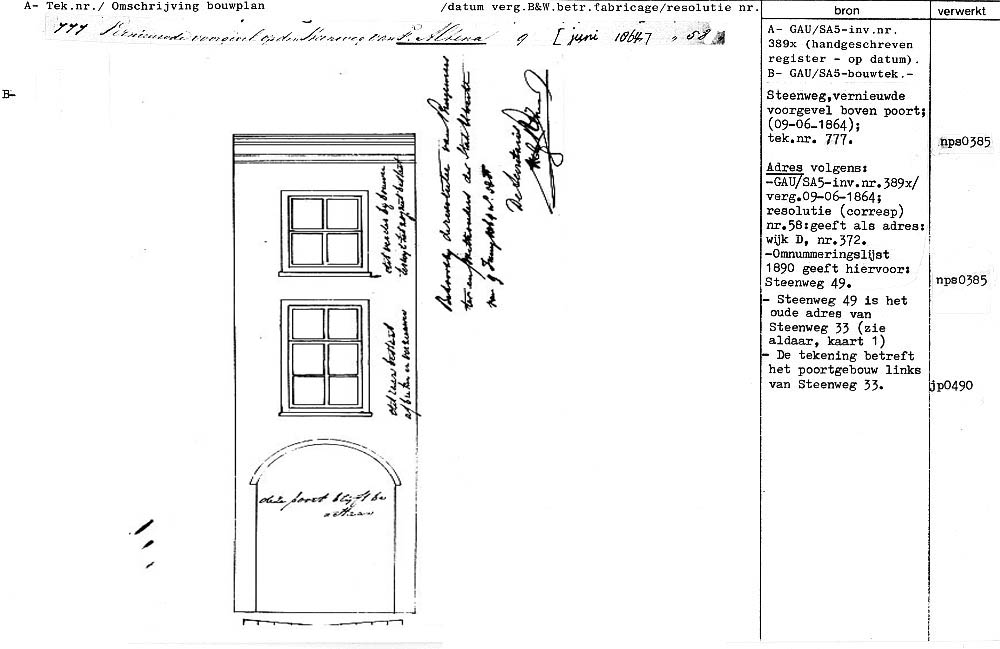 A- Tek.nr./ Omschrijving bouwplan /datum verg.B&W.betr.fabricage/resolutie nr.
777 Vernieuwde voorgevel op den Steenweg van F. Altena 9 [juni 1864] " 58
B-
bron verwerkt
A- GAU/SA5-inv.nr.
389x (handgeschreven
register - op datum).
B- GAU/SA5-bouwtek.-
Steenweg,vernieuwde
voorgevel boven poort;
(09-06-1864);
tek.nr. 777.
nps0385
Adres volgens:
-GAU/SA5-inv.nr.389x/
verg.09-06-1864;
resolutie (corresp)
nr.58:geeft als adres:
wijk D, nr.372.
-Omnummeringslijst
1890 geeft hiervoor:
Steenweg 49.
nps0385
- Steenweg 49 is het
oude adres van
Steenweg 33 (zie
aldaar, kaart 1)
- De tekening betreft
het poortgebouw links
van Steenweg 33.
jp0490
Behoort by de resolutie van Burgemees
ter en Wethouders der Stad Utrecht
van 9 Juny 1864 no. 58
De Secretaris
deze poort blyft be
staan